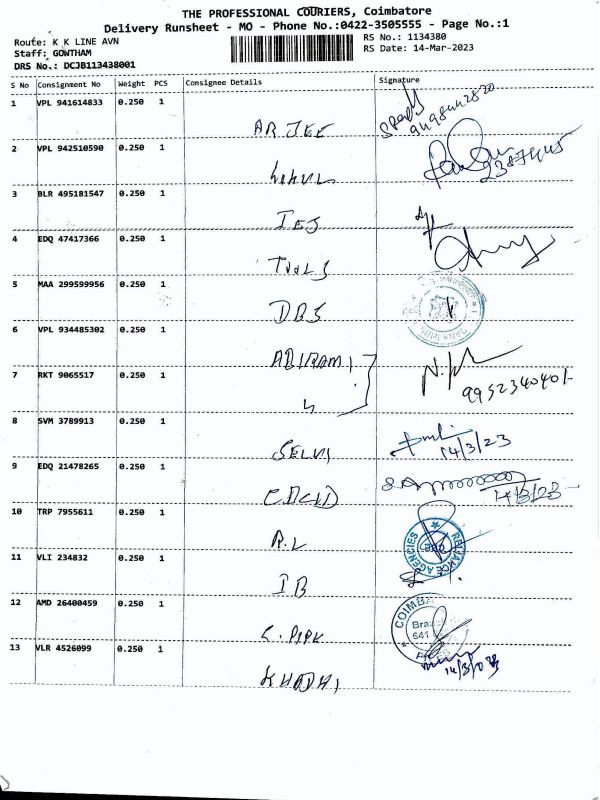 THE PROFESSIONAL COURIERS, Coimbatore
Delivery Runsheet - MO - Phone No.:0422-3505555 - Page No.:1
Route: K K LINE AVN
Staff: GOWTHAM
DRS No.: DCJB113438001
RS No.: 1134380
RS Date: 14-Mar-2023
S No Consignment No Weight PCS Consignee Details Signature
1 VPL 941614833 0.250 1
AR JEE
2 VPL 942510590 0.250 1
3 BLR 495181547 0.250 1
IES
4 EDQ 47417366 0.250 1
TOOLS
5 MAA 299599956 0.250 1
DBS
6 VPL 934485302 0.250 1
ABIRAMI
7 RKT 9065517 0.250 1
9952340401-
8 SVM 3789913 0.250 1
SELVI 14/3/23
9 EDQ 21478265 0.250 1
14/3/23-
10 TRP 7955611 0.250 1
R.L RELIANCE AGENCIES
11 VLI 234832 0.250 1
IB
12 AMD 26400459 0.250 1
C. PIPE
13 VLR 4526099 0.250 1
KHADHI 14/3/023